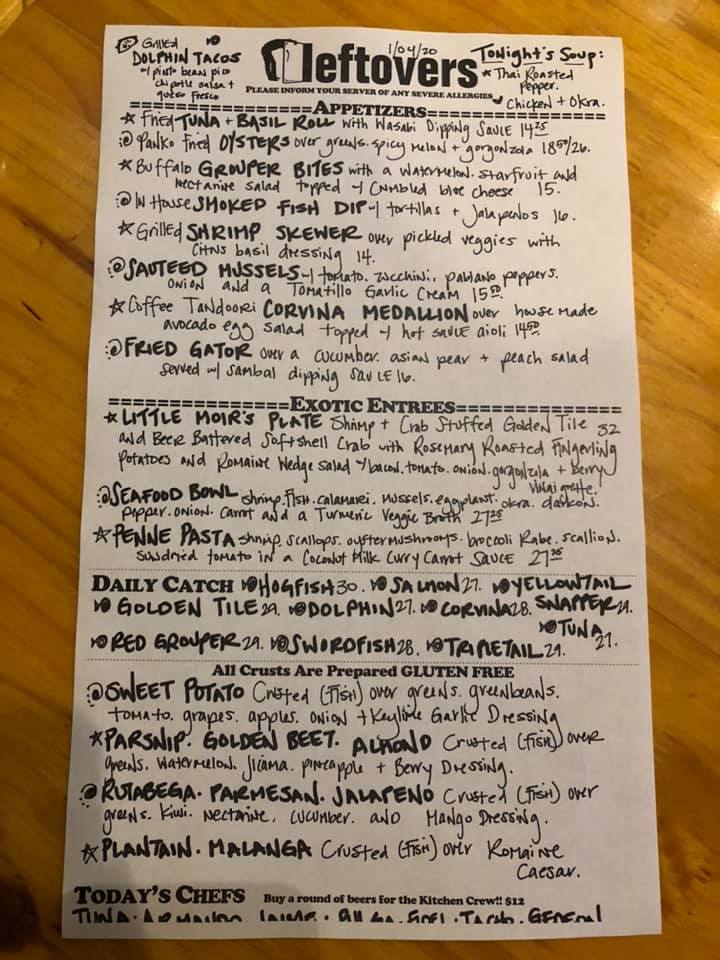 Grilled
DOLPHIN TACOS
w/ pinto bean pico
chipotle salsa +
queso fresco
leftovers
1/04/20
PLEASE INFORM YOUR SERVER OF ANY SEVERE ALLERGIES
Tonight's Soup:
Thai Roasted
Pepper.
Chicken + Okra.
APPETIZERS
Fried TUNA + BASIL ROLL with Wasabi Dipping Sauce 14 25
Panko Fried OYSTERS over greens. spicy melon + gorgonzola 18 50/26.
Buffalo GROUPER BITES with a watermelon. starfruit and
nectarine salad topped w/ crumbled bleu cheese 15.
In House SMOKED FISH DIP w/ tortillas + Jalapenos 16.
Grilled SHRIMP SKEWER over pickled veggies with
citrus basil dressing 14.
SAUTEED MUSSELS w/ tomato. zucchini. pablano peppers.
onion and a Tomatillo Garlic Cream 15 50
Coffee Tandoori CORVINA MEDALLION over house made
avocado egg salad topped w/ hot sauce aioli 14 50
FRIED GATOR over a cucumber. asian pear + peach salad
served w/ sambal dipping sauce 16.
EXOTIC ENTREES
LITTLE MOIR'S PLATE Shrimp + Crab Stuffed Golden Tile 32
and Beer Battered Softshell Crab with Rosemary Roasted Fingerling
Potatoes and Romaine Wedge salad w/ bacon. tomato. onion. gorgonzola + Berry
Vinaigrette.
SEAFOOD BOWL shrimp. fish. calamari. mussels. eggplant. okra. daikon.
pepper. onion. carrot and a Turmeric Veggie Broth 27 25
PENNE PASTA shrimp. scallops. oyster mushrooms. broccoli Rabe. scallion.
sundried tomato in a Coconut Milk Curry Carrot Sauce 27
DAILY CATCH HOGFISH 30. SALMON 27. YELLOWTAIL
GOLDEN TILE 29. DOLPHIN 27. CORVINA 28. SNAPPER 29.
RED GROUPER 29. SWORDFISH 28. TRIPLETAIL 29. TUNA 27.
All Crusts Are Prepared GLUTEN FREE
SWEET POTATO Crusted (Fish) over greens. greenbeans.
tomato. grapes. apples. onion + Keylime Garlic Dressing
PARSNIP. GOLDEN BEET. ALMOND Crusted (Fish) over
greens. Watermelon. Jicama. pineapple + Berry Dressing.
RUTABEGA. PARMESAN. JALAPENO Crusted (Fish) over
greens. kiwi. nectarine, cucumber. and Mango Dressing.
PLANTAIN. MALANGA Crusted (Fish) over Romaine
Caesar.
TODAY'S CHEFS Buy a round of beers for the Kitchen Crew!! $12